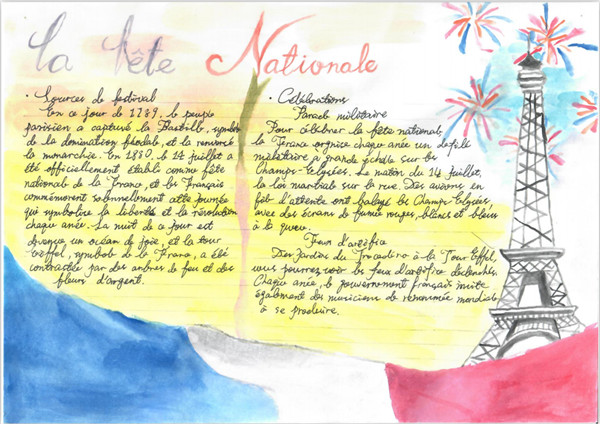 La fête Nationale
· Sources de festival
En ce jour de 1789, le peuple
parisien a capturé la Bastille, symbole
de la domination féodale, et la renversé
la monarchie. En 1880, le 14 juillet a
été officiellement établi comme fête
nationale de la France, et les Français
commémorent solennellement cette journée
qui symbolise la liberté et la révolution
chaque année. La nuit de ce jour est
divenue un océan de joie, et la tour
eiffel, symbole de la France, a été
contractée par des arbres de feu et des
fleurs d'argent.
· Célébrations
Parade militaire
Pour célébrer la fête nationale,
la France orgnise chaque anée un défilé
militaire à grande échelle sur les
Champs-Elysées. Le matin du 14 juillet,
la loi martiale sur la rue. Des avions en
file d'attente ont balayé les Champs-Elysées
avec des écrans de fumée rouges, blancs et bleus
à la queue.
Feux d'artifice
Des Jardins du Trocadéro à la Tour Eiffel,
vous pourrez voir les feux d'artifice déclenchés.
Chaque anée, le gouvernement français invite
également des musiciens de renommée mondiale
à se produire.